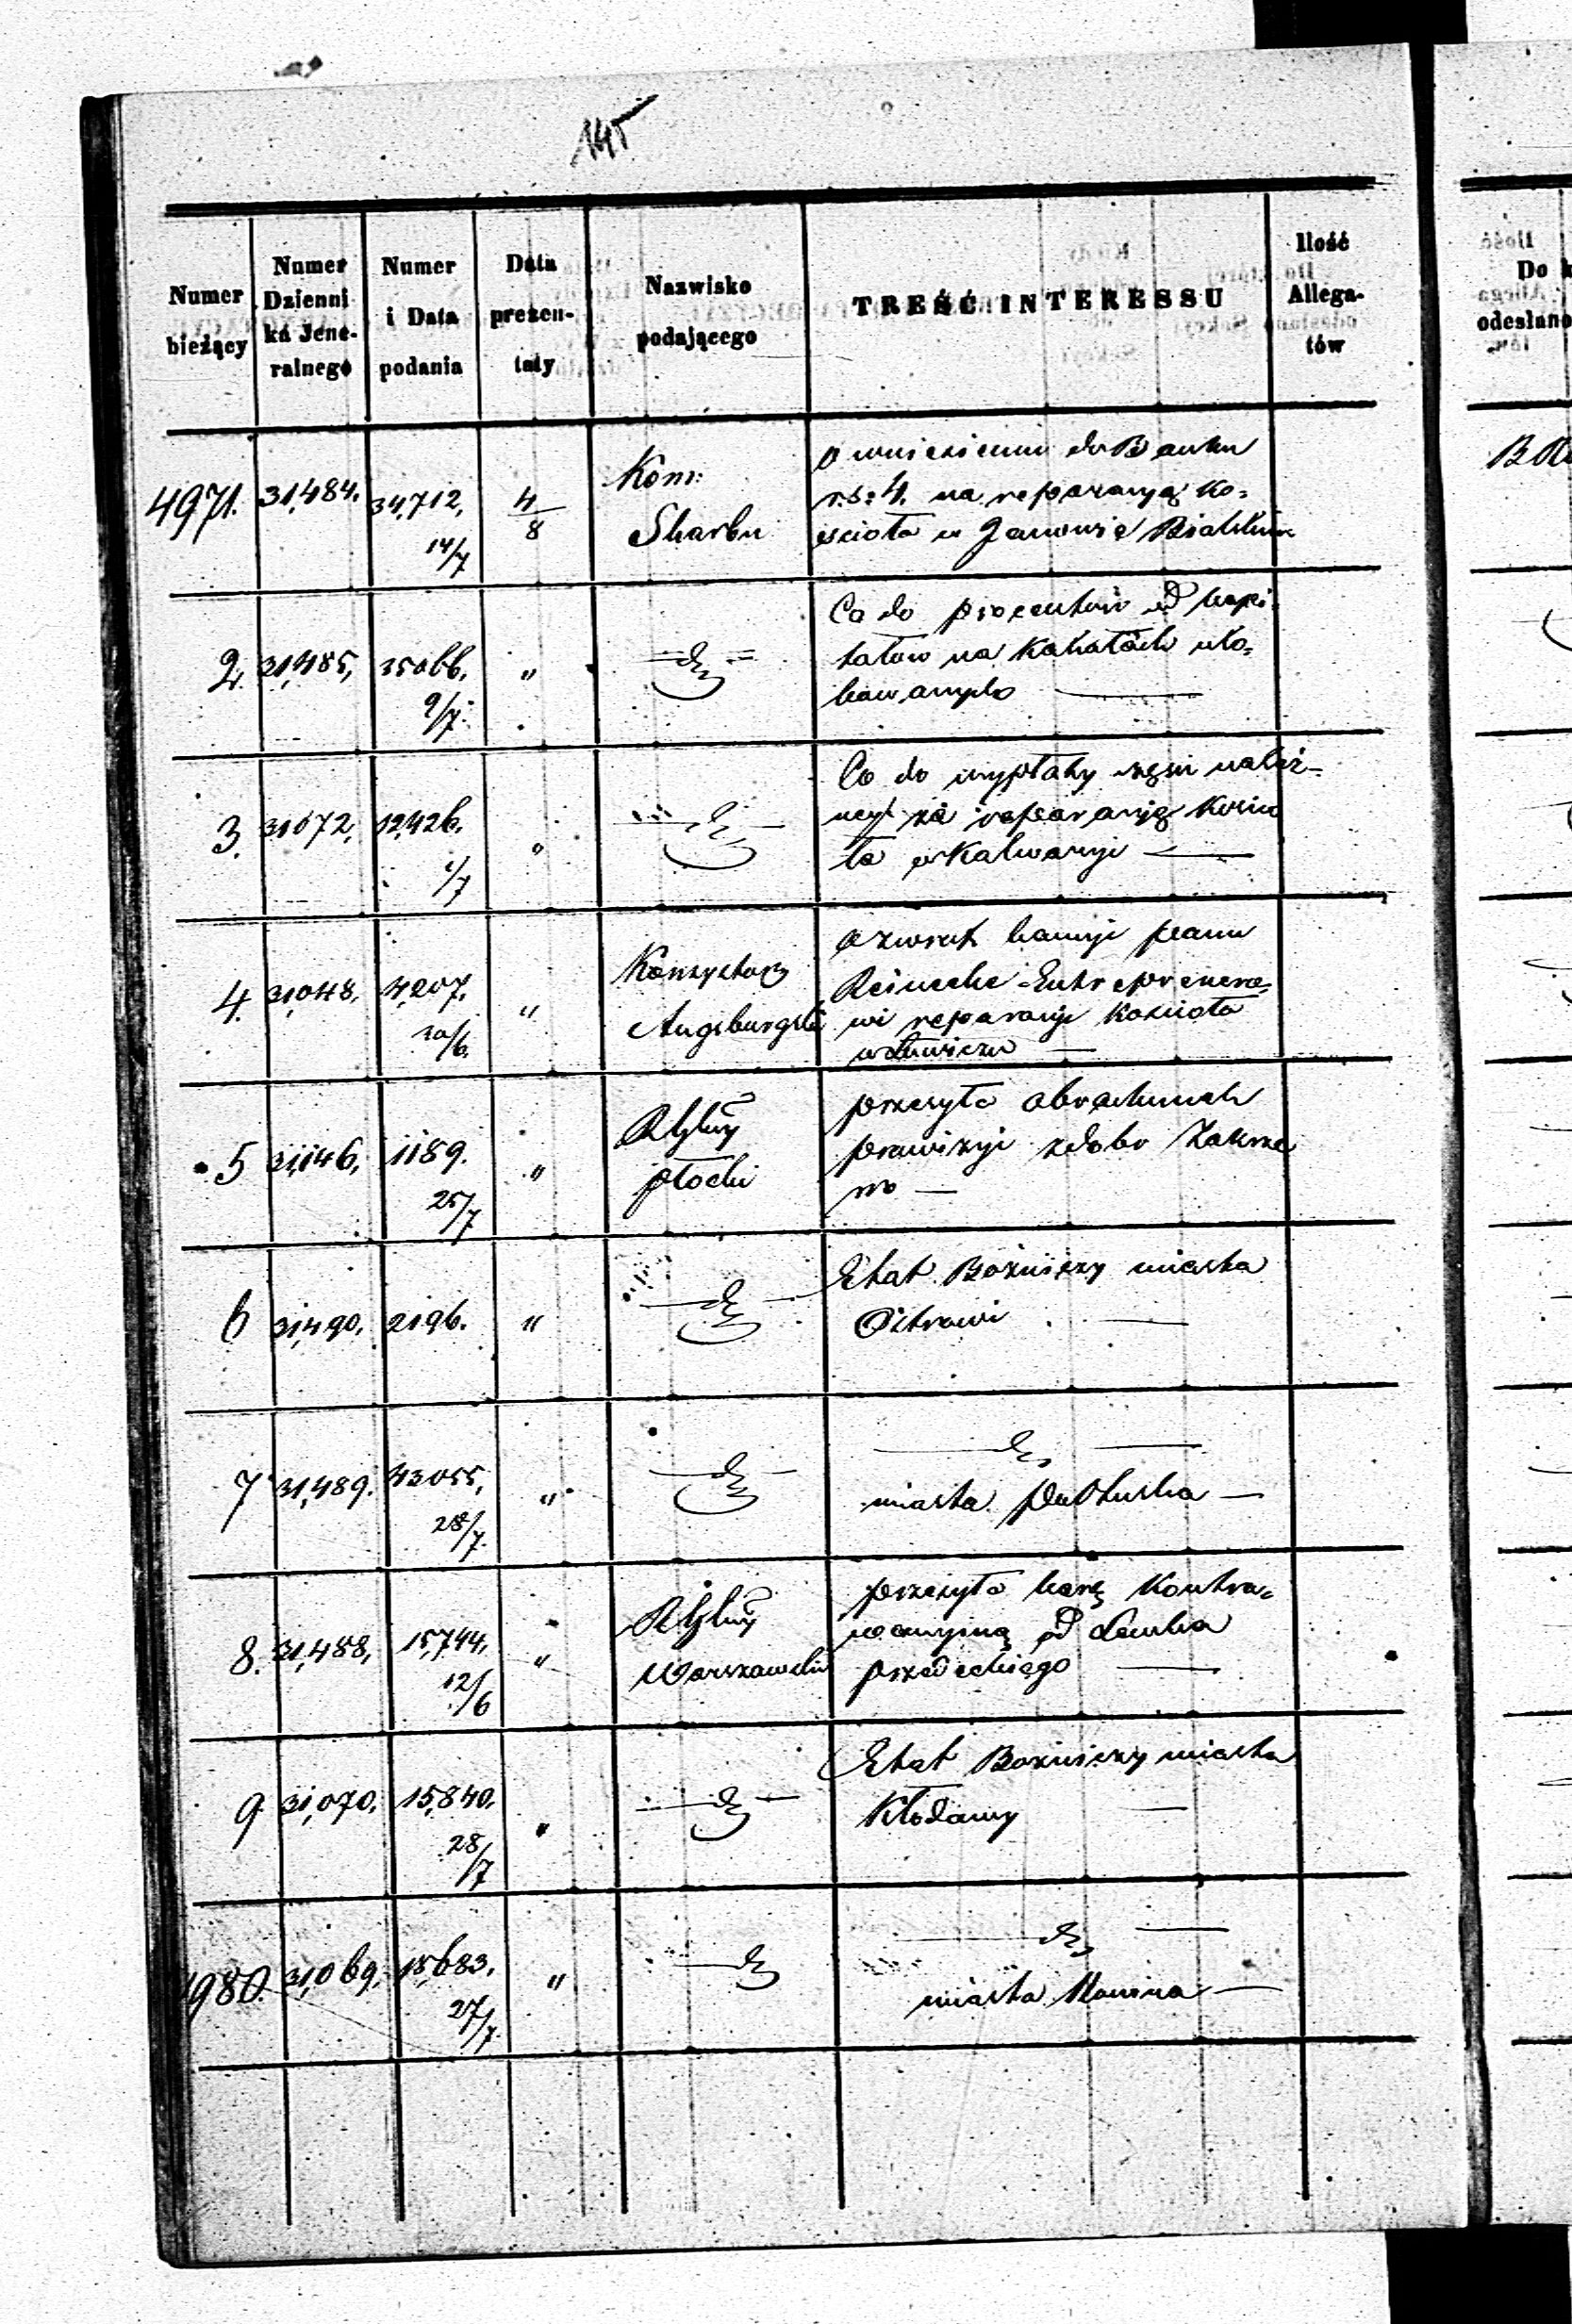 145
Numer bieżący
Numer Dzienni ka Jene- ralnego
Numer i Data podania
Data prezen- taty
Nazwisko podającego
TREŚĆ INTERESSU
Ilość Allega- tów
Do
odesłano
4971. 31,484. 34,712, 14/7 4/8 Kom: Skarbu
o wniesieniu do Banku
r.s: 4. na reparacyą Ko=
ścioła w Janowie Bialskim
2. 31,485, 35066. 9/7 "
Co do procentów od kapi-
tałów na Kahałach uło=
kowanych
3. 31072, 12,426. 1/7 "
Co do wypłaty należ-
nej za reparacyę Kościo
ła w Kalwaryi
4. 31,048, 4,207. 20/6. " Konsystorz Augsburgski
o zwrot kaucyi panu
Reinecke Entreprenero=
wi reparacyi Kościoła
5 31,146, 1189. 25/7 " płocki
przesyła obrachunek
prowizyi z dóbr Zakrze
wo
6 31,490. 2196. "
Etat Bożniczy miasta
7 31,489. 43055, 28/7. "
miasta Pułtuska
8. 31,488, 15,744, 12/6 " Warszawski
przesyła karę Kontra=
wencyjną od
9. 31,070. 15,840. 28/7 "
Etat Bożniczy miasta
Kłodawy
4980. 31,069. 15,683. 27/7. "
miasta Konina